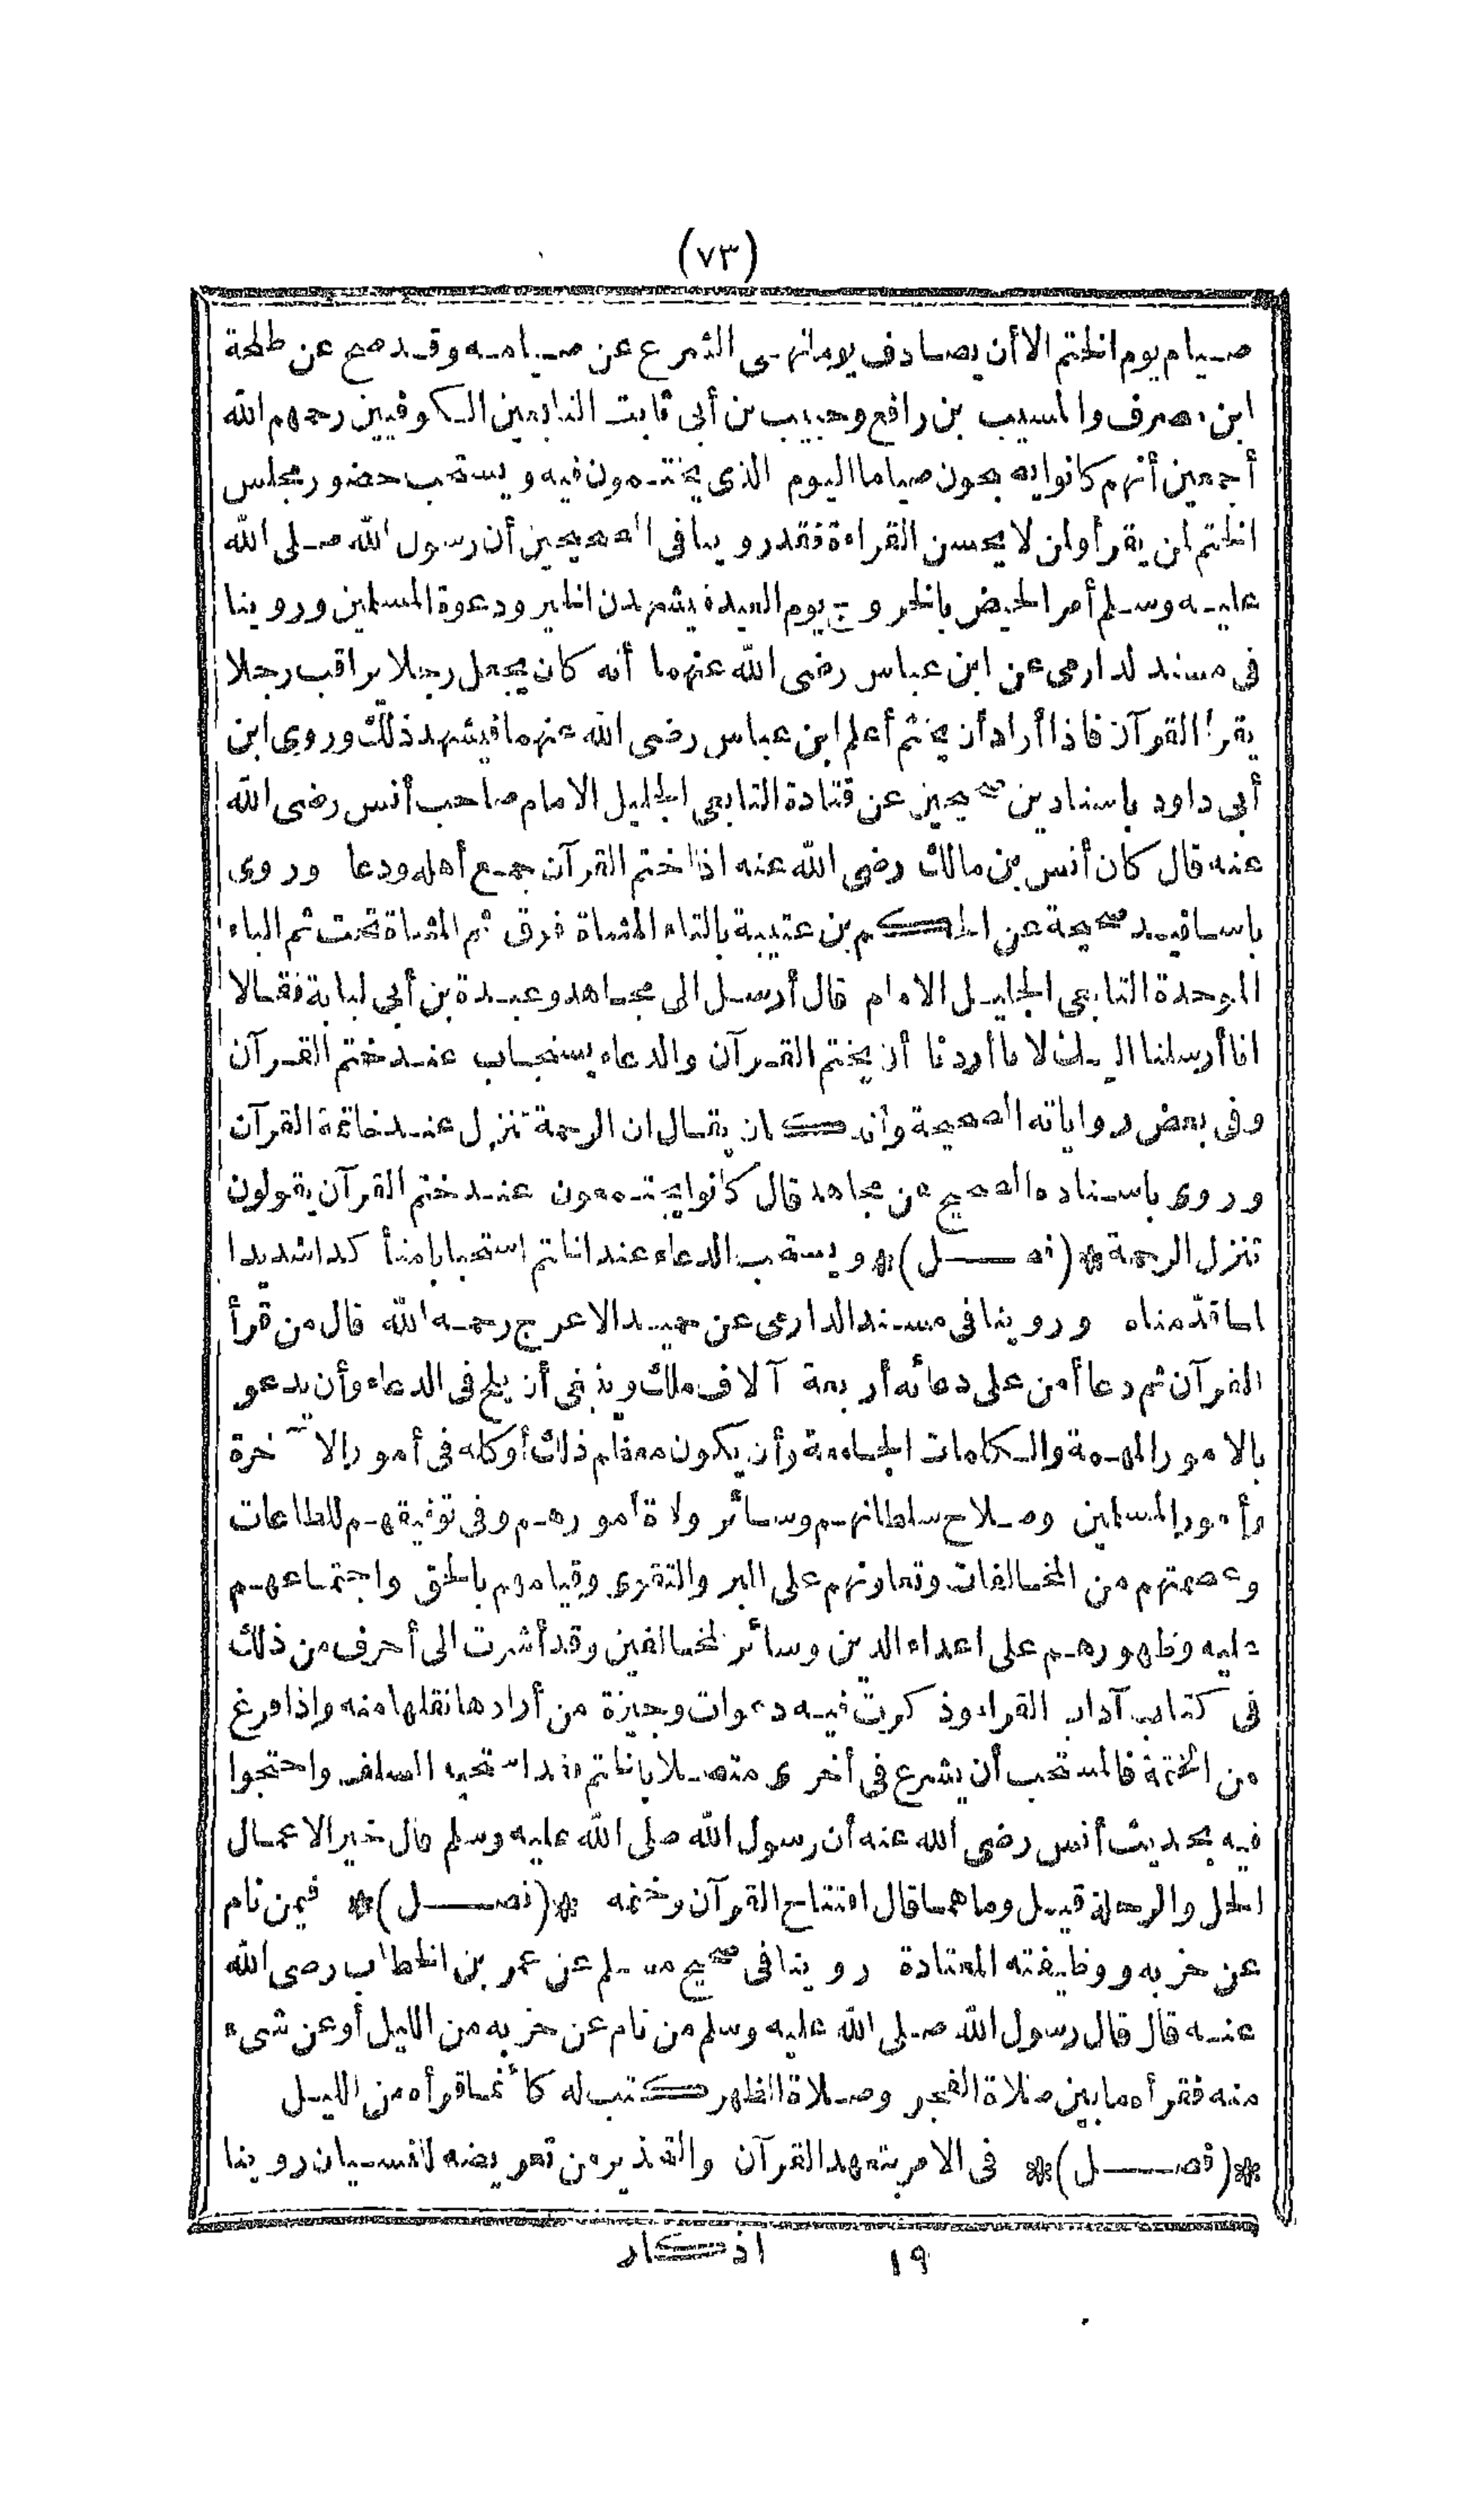 (٧٣)
صيام يوم الختم الا أن يصادف يوما نهى الشرع عن صيامه وقد صح عن طلحة
ابن مصرف والمسيب بن رافع وحبيب بن أبي ثابت التابعين الكوفيين رحمهم الله
أجمعين أنهم كانوا يصبحون صياما اليوم الذى يختمون فيه ويستحب حضور مجلس
الختم لمن يقرأ ولمن لا يحسن القراءة فقد روينا فى الصحيحين أن رسول الله صلى الله
عليه وسلم أمر الحيض بالخروج يوم العيد فيشهدن الخير ودعوة المسلمين وروينا
فى مسند لدارمى عن ابن عباس رضى الله عنهما أنه كان يجعل رجلا يراقب رجلا
يقرأ القرآن فاذا أراد أن يختم أعلم ابن عباس رضى الله عنهما فيشهد ذلك وروى ابن
أبى داود باسنادين صحيحين عن قتادة التابعى الجليل الامام صاحب أنس رضى الله
عنه قال كان أنس بن مالك رضى الله عنه اذا ختم القرآن جمع أهله ودعا وروى
باسانيد صحيحة عن الحكم بن عتيبة بالتاء المثناة فوق ثم المثناة تحت ثم الباء
الموحدة التابعى الجليل الامام قال أرسل الى مجاهد وعبدة بن أبى لبابة فقالا
انا أرسلنا اليك لانا أردنا أن يختم القرآن والدعاء يستجاب عند ختم القرآن
وفى بعض رواياته الصحيحة وأنه كان يقال ان الرحمة تنزل عند خاتمة القرآن
وروى باسناده الصحيح عن مجاهد قال كانوا يجتمعون عند ختم القرآن يقولون
تنزل الرحمة *(فصل)* ويستحب الدعاء عند الختم استحبابا متأكدا شديدا
لما قدّمناه وروينا فى مسند الدارمى عن حميد الاعرج رحمه الله قال من قرأ
القرآن ثم دعا أمن على دعائه أربعة آلاف ملك وينبغى أن يلح فى الدعاء وأن يدعو
بالامور المهمة والكلمات الجامعة وأن يكون معظم ذلك أو كله فى أمور الآخرة
وأمور المسلمين وصلاح سلطانهم وسائر ولاة أمورهم وفى توفيقهم للطاعات
وعصمتهم من المخالفات وتعاونهم على البر والتقوى وقيامهم بالحق واجتماعهم
عليه وظهورهم على اعداء الدين وسائر المخالفين وقد أشرت الى أحرف من ذلك
فى كتاب آداب القراء وذكرت فيه دعوات وجيزة من أرادها نقلها منه واذا فرغ
من الختمة فالمستحب أن يشرع فى أخرى متصلا بالختم فقد استحبه السلف واحتجوا
فيه بحديث أنس رضى الله عنه أن رسول الله صلى الله عليه وسلم قال خير الاعمال
الحل والرحلة قيل وما هما قال افتتاح القرآن وختمه *(فصل)* فيمن نام
عن حزبه ووظيفته المعتادة روينا فى صحيح مسلم عن عمر بن الخطاب رضى الله
عنه قال قال رسول الله صلى الله عليه وسلم من نام عن حزبه من الليل أو عن شىء
منه فقرأه ما بين صلاة الفجر وصلاة الظهر كتب له كأنما قرأه من الليل
*(فصل)* فى الامر بتعهد القرآن والتحذير من تعريضه للنسيان روينا
١٩ اذكار